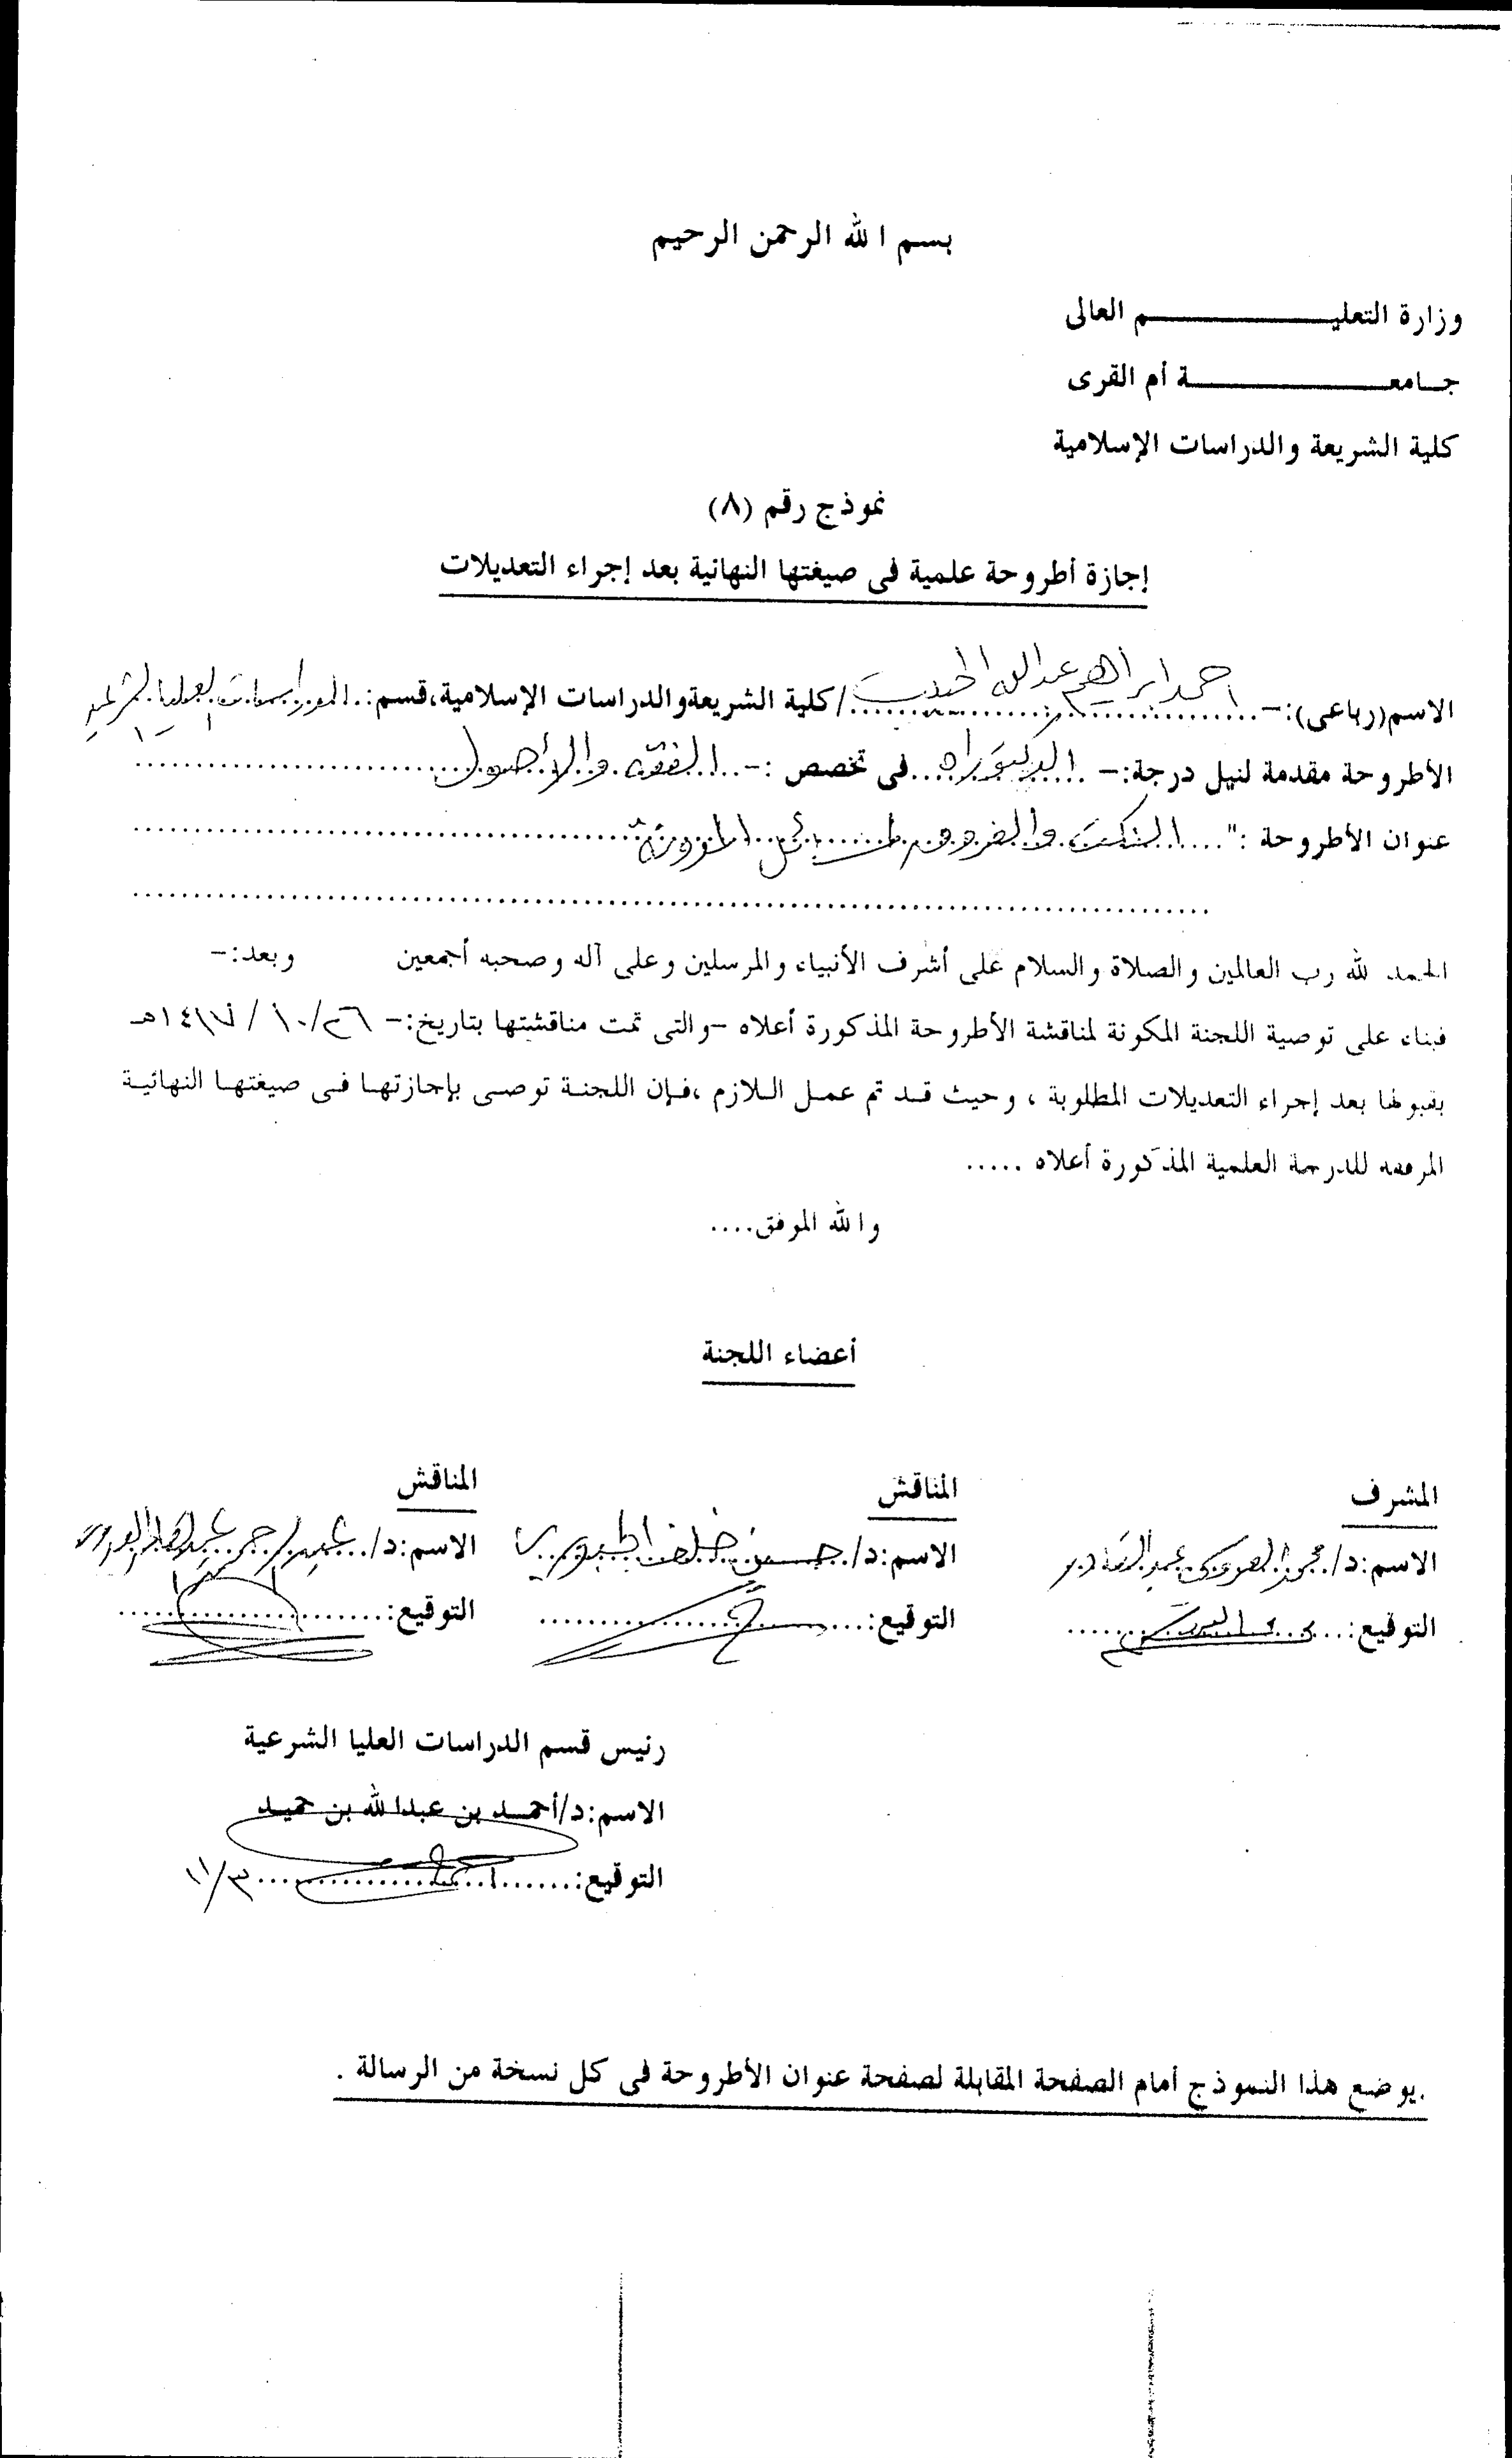 بسم الله الرحمن الرحيم
وزارة التعليم العالى
جامعة أم القرى
كلية الشريعة والدراسات الإسلامية
نموذج رقم (٨)
إجازة أطروحة علمية فى صيغتها النهائية بعد إجراء التعديلات
الاسم(رباعى):- احمد ابراهيم عبدالله الحبيب /كلية الشريعة والدراسات الإسلامية،قسم: الدراسات العليا الشرعية
الأطروحة مقدمة لنيل درجة:- الدكتوراه فى تخصص :- الفقه والأصول
عنوان الأطروحة :" النكت والفروق لمسائل المدونة
الحمد لله رب العالمين والصلاة والسلام على أشرف الأنبياء والمرسلين وعلى آله وصحبه أجمعين وبعد:-
فبناء على توصية اللجنة المكونة لمناقشة الأطروحة المذكورة أعلاه -والتى تمت مناقشتها بتاريخ:- ٢٦/ ١٠/ ١٤١٧هـ
بقبولها بعد إجراء التعديلات المطلوبة ، وحيث قد تم عمل اللازم ،فإن اللجنة توصى بإجازتها فى صيغتها النهائية
المرفقه للدرجة العلمية المذكورة أعلاه .....
والله الموفق....
أعضاء اللجنة
المشرف المناقش المناقش
الاسم:د/ محمد العروسى عبدالقادر الاسم:د/ حسين خلف الجبورى الاسم:د/
التوقيع: التوقيع: التوقيع:
رئيس قسم الدراسات العليا الشرعية
الاسم:د/أحمد بن عبدالله بن حميد
التوقيع: ١١/٣
.يوضع هذا النموذج أمام الصفحة المقابلة لصفحة عنوان الأطروحة فى كل نسخة من الرسالة .